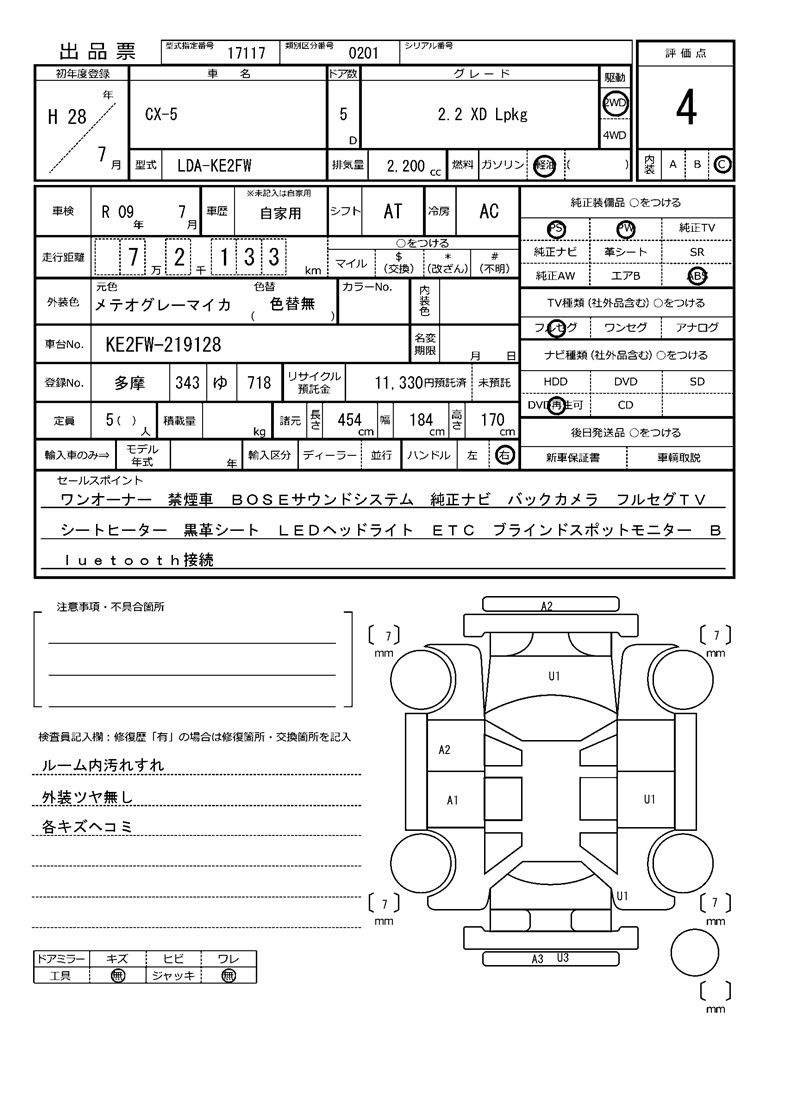 出品票 型式指定番号 17117 類別区分番号 0201 シリアル番号
評価点
初年度登録 車名 ドア数 グレード 駆動
H 28 年 7 月 CX-5 5 D 2.2 XD Lpkg 2WD 4WD
4
型式 LDA-KE2FW 排気量 2,200 cc 燃料 ガソリン 軽油 ( )
内装 A B C
車検 R 09 年 7 月 車歴 ※未記入は自家用 自家用 シフト AT 冷房 AC
純正装備品 ○をつける
PS PW 純正TV
純正ナビ 革シート SR
純正AW エアB ABS
走行距離 7 万 2 千 1 3 3 km
○をつける
マイル $(交換) *(改ざん) #(不明)
外装色 元色 メテオグレーマイカ 色替 ( 色替無 ) カラーNo. 内装色
TV種類(社外品含む)○をつける
フルセグ ワンセグ アナログ
車台No. KE2FW-219128 名変期限 月 日
ナビ種類(社外品含む)○をつける
HDD DVD SD
DVD再生可 CD
登録No. 多摩 343 ゆ 718 リサイクル預託金 11,330円預託済 未預託
定員 5( )人 積載量 kg 諸元 長さ 454 cm 幅 184 cm 高さ 170 cm
後日発送品 ○をつける
新車保証書 車輌取説
輸入車のみ⇒ モデル年式 年 輸入区分 ディーラー 並行 ハンドル 左 右
セールスポイント
ワンオーナー 禁煙車 BOSEサウンドシステム 純正ナビ バックカメラ フルセグTV
シートヒーター 黒革シート LEDヘッドライト ETC ブラインドスポットモニター B
luetooth接続
注意事項・不具合箇所
検査員記入欄：修復歴「有」の場合は修復箇所・交換箇所を記入
ルーム内汚れすれ
外装ツヤ無し
各キズヘコミ
ドアミラー キズ ヒビ ワレ
工具 無 ジャッキ 無
A2
7 mm
7 mm
U1
A2
A1
U1
U1
7 mm
7 mm
A3 U3
mm